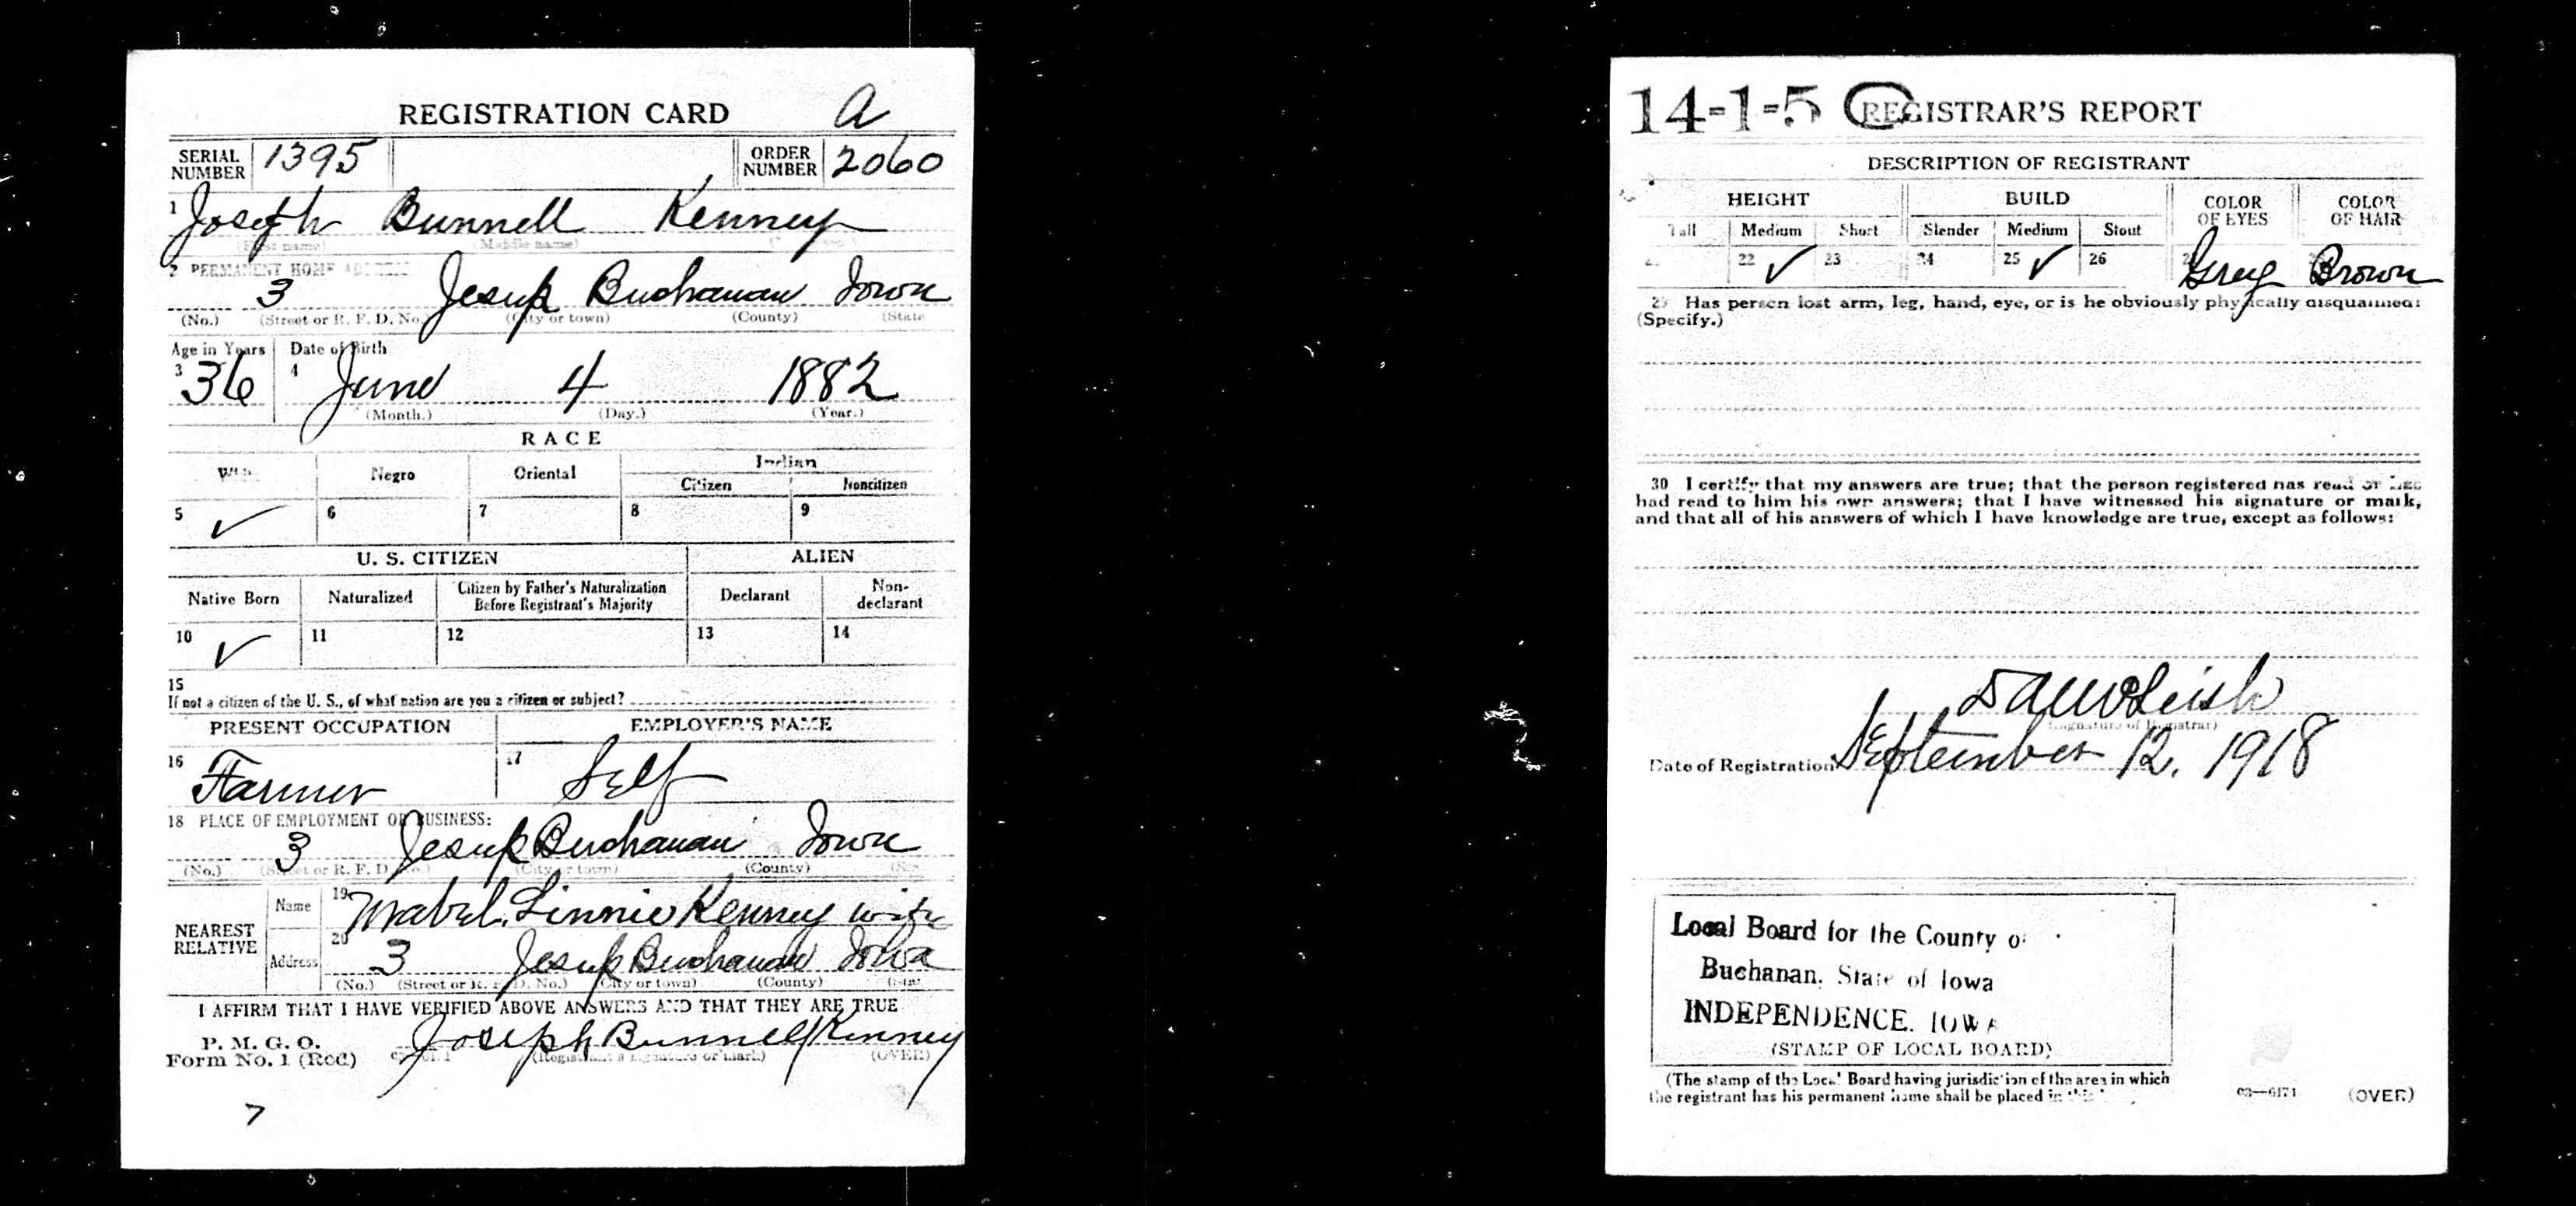 REGISTRATION CARD A
SERIAL NUMBER 1395 ORDER NUMBER 2060
1 Joseph Bunnell Kenney
(First name) (Middle name)
2 PERMANENT HOME ADDRESS
3 Jesup Buchanan Iowa
(No.) (Street or R. F. D. No.) (City or town) (County) (State
Age in Years Date of Birth
3 36 4 June 4 1882
(Month.) (Day.) (Year.)
RACE
Negro Oriental Indian
Citizen Noncitizen
5 ✓ 6 7 8 9
U. S. CITIZEN ALIEN
Native Born Naturalized Citizen by Father's Naturalization Before Registrant's Majority Declarant Non-declarant
10 ✓ 11 12 13 14
15
If not a citizen of the U. S., of what nation are you a citizen or subject?
PRESENT OCCUPATION EMPLOYER'S NAME
16 Farmer 17 Self
18 PLACE OF EMPLOYMENT OR BUSINESS:
3 Jesup Buchanan Iowa
(No.) (Street or R. F. D. No.) (City or town) (County)
NEAREST RELATIVE
Name 19 Mabel Linnie Kenney wife
Address 20 3 Jesup Buchanan Iowa
(No.) (Street or R. F. D. No.) (City or town) (County) (State
I AFFIRM THAT I HAVE VERIFIED ABOVE ANSWERS AND THAT THEY ARE TRUE
P. M. G. O.
Form No. 1 (Red) Joseph Bunnell Kenney
(Registrant's signature or mark) (OVER)
7
14-1-5 C REGISTRAR'S REPORT
DESCRIPTION OF REGISTRANT
HEIGHT BUILD COLOR OF EYES COLOR OF HAIR
Tall Medium Short Slender Medium Stout
22 ✓ 23 24 25 ✓ 26 Grey Brown
29 Has person lost arm, leg, hand, eye, or is he obviously physically disqualified?
(Specify.)
30 I certify that my answers are true; that the person registered has read or has
had read to him his own answers; that I have witnessed his signature or mark,
and that all of his answers of which I have knowledge are true, except as follows:
(Signature of Registrar)
Date of Registration September 12, 1918
Local Board for the County of
Buchanan, State of Iowa
INDEPENDENCE, IOWA
(STAMP OF LOCAL BOARD)
(The stamp of the Local Board having jurisdiction of the area in which
the registrant has his permanent home shall be placed in this
03—6171 (OVER)